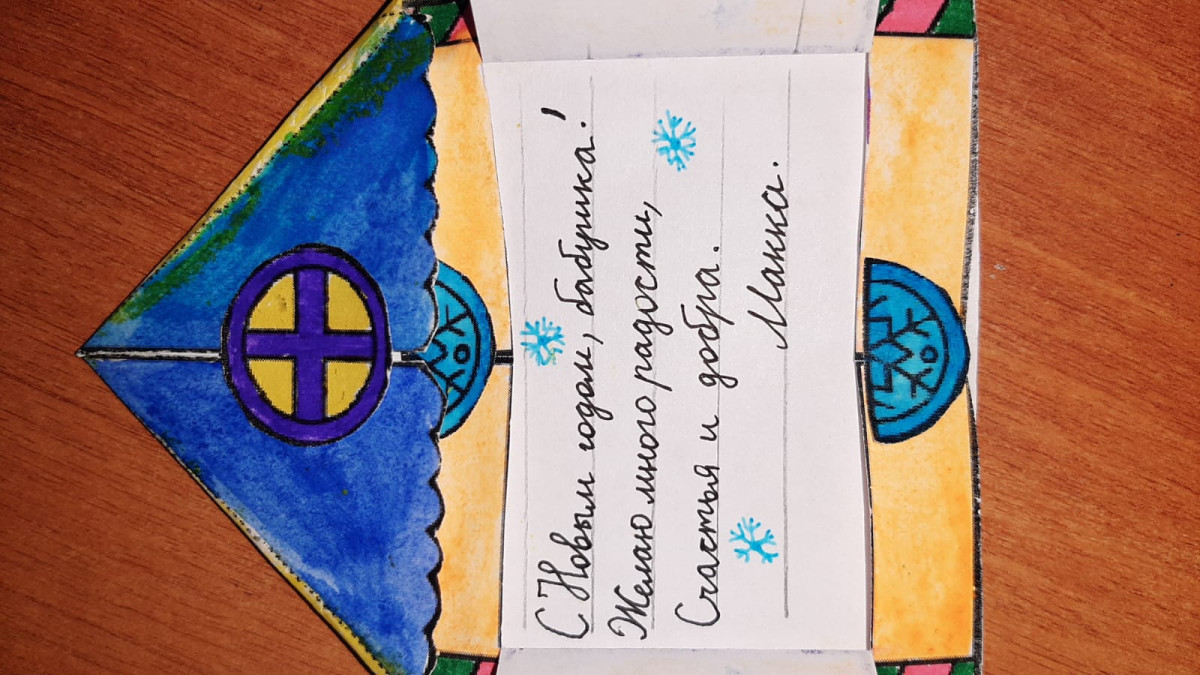 С Новым годом, бабушка!
Желаю много радости,
Счастья и добра.
Макка.